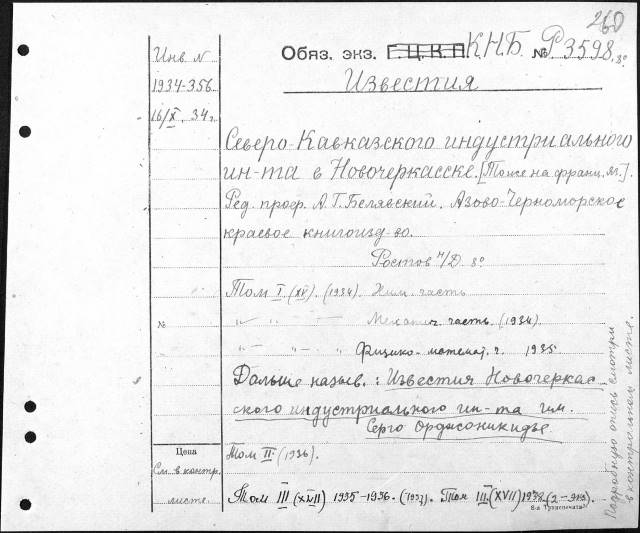 260
Обяз. экз. Г.Ц.К.П. К.Н.Б. № Р3598. 8°
Известия
Инв. N
1934-356
16/X. 34г.
Северо-Кавказского индустриального
ин-та в Новочеркасске. [Тоже на франц. яз.].
Ред. проф. А.Г. Белявский. Азово-Черноморское
краевое книгоизд-во.
Ростов н/Д. 8°
Том I (XV). (1934). Хим. часть
№
" — " — Механич. часть. (1934).
" — " — " Физико-математ. ч. 1935
Дальше назыв.: Известия Новочеркас-
ского индустриального ин-та им.
Серго Орджоникидзе
Цена
См. в контр.
листе.
Том II (1936).
Том III (XVII) 1935-1936. (1937). Том III. (XVII) 1938 (2-экз).
Подробную опись смотри
в контрольном листе.